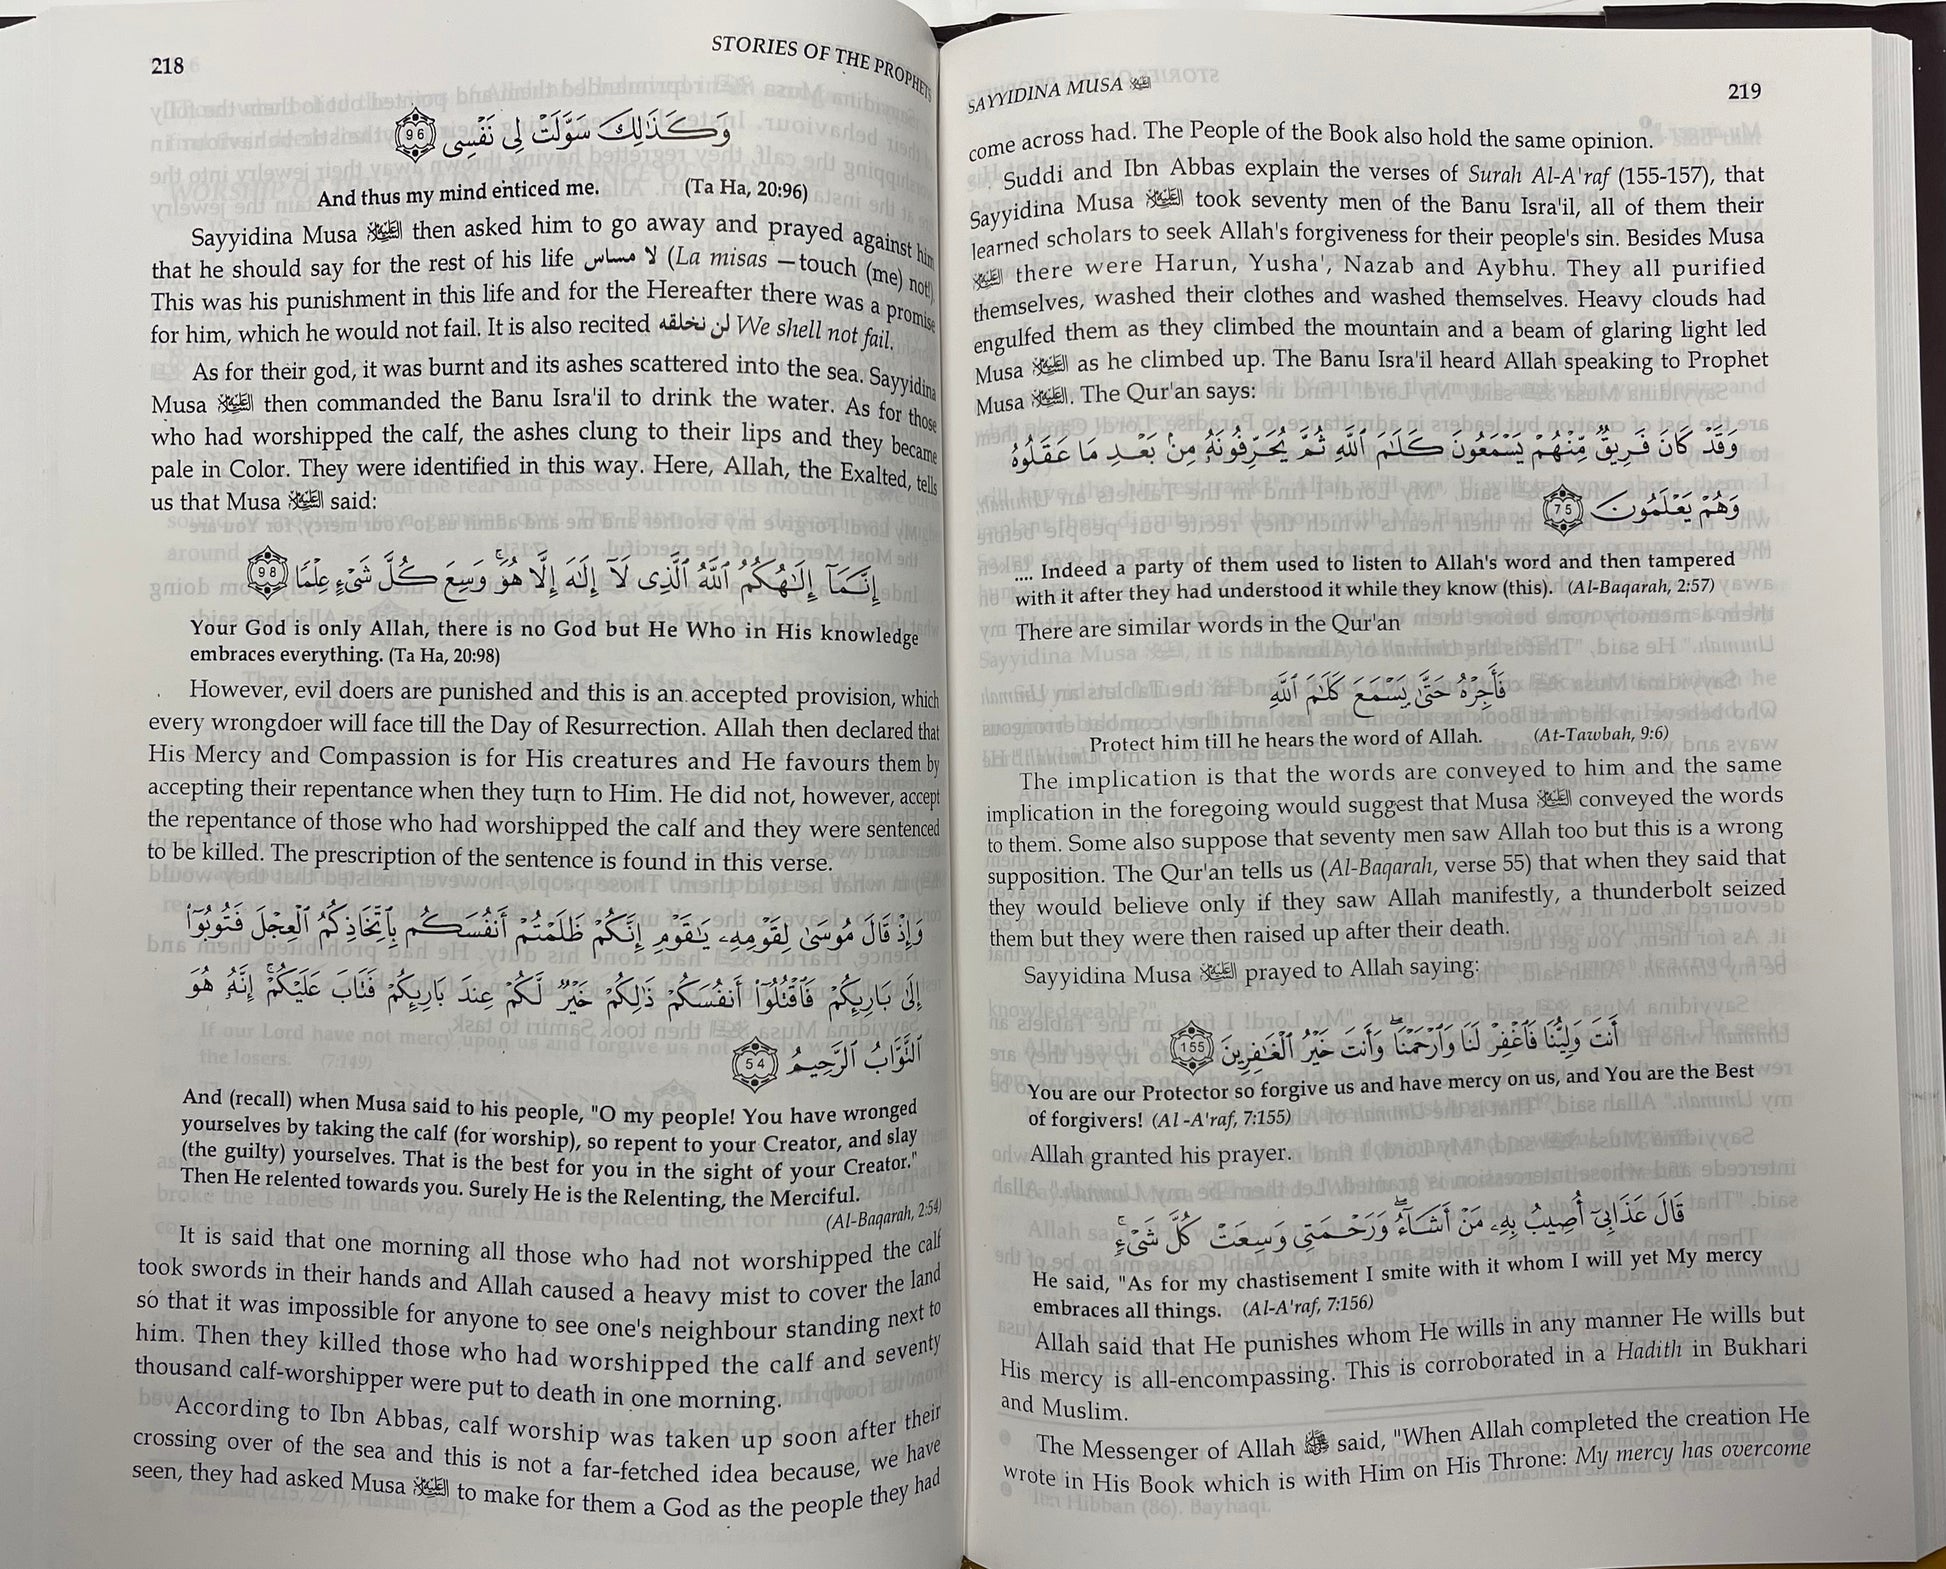 218
STORIES OF THE PROPHETS
وَكَذَٰلِكَ سَوَّلَتْ لِى نَفْسِى ٩٦
And thus my mind enticed me. (Ta Ha, 20:96)
Sayyidina Musa عليه السلام then asked him to go away and prayed against him
that he should say for the rest of his life لا مساس (La misas —touch (me) not!).
This was his punishment in this life and for the Hereafter there was a promise
for him, which he would not fail. It is also recited لن نخلقه We shell not fail.
As for their god, it was burnt and its ashes scattered into the sea. Sayyidina
Musa عليه السلام then commanded the Banu Isra'il to drink the water. As for those
who had worshipped the calf, the ashes clung to their lips and they became
pale in Color. They were identified in this way. Here, Allah, the Exalted, tells
us that Musa عليه السلام said:
إِنَّمَآ إِلَٰهُكُمُ ٱللَّهُ ٱلَّذِى لَآ إِلَٰهَ إِلَّا هُوَ ۚ وَسِعَ كُلَّ شَىْءٍ عِلْمًا 98
Your God is only Allah, there is no God but He Who in His knowledge
embraces everything. (Ta Ha, 20:98)
However, evil doers are punished and this is an accepted provision, which
every wrongdoer will face till the Day of Resurrection. Allah then declared that
His Mercy and Compassion is for His creatures and He favours them by
accepting their repentance when they turn to Him. He did not, however, accept
the repentance of those who had worshipped the calf and they were sentenced
to be killed. The prescription of the sentence is found in this verse.
وَإِذْ قَالَ مُوسَىٰ لِقَوْمِهِۦ يَٰقَوْمِ إِنَّكُمْ ظَلَمْتُمْ أَنفُسَكُم بِٱتِّخَاذِكُمُ ٱلْعِجْلَ فَتُوبُوٓا۟
إِلَىٰ بَارِئِكُمْ فَٱقْتُلُوٓا۟ أَنفُسَكُمْ ذَٰلِكُمْ خَيْرٌ لَّكُمْ عِندَ بَارِئِكُمْ فَتَابَ عَلَيْكُمْ ۚ إِنَّهُۥ هُوَ
ٱلتَّوَّابُ ٱلرَّحِيمُ 54
And (recall) when Musa said to his people, "O my people! You have wronged
yourselves by taking the calf (for worship), so repent to your Creator, and slay
(the guilty) yourselves. That is the best for you in the sight of your Creator."
Then He relented towards you. Surely He is the Relenting, the Merciful.
(Al-Baqarah, 2:54)
It is said that one morning all those who had not worshipped the calf
took swords in their hands and Allah caused a heavy mist to cover the land
so that it was impossible for anyone to see one's neighbour standing next to
him. Then they killed those who had worshipped the calf and seventy
thousand calf-worshipper were put to death in one morning.
According to Ibn Abbas, calf worship was taken up soon after their
crossing over of the sea and this is not a far-fetched idea because, we have
seen, they had asked Musa عليه السلام to make for them a God as the people they had
SAYYIDINA MUSA عليه السلام
219
come across had. The People of the Book also hold the same opinion.
Suddi and Ibn Abbas explain the verses of Surah Al-A'raf (155-157), that
Sayyidina Musa عليه السلام took seventy men of the Banu Isra'il, all of them their
learned scholars to seek Allah's forgiveness for their people's sin. Besides Musa
عليه السلام there were Harun, Yusha', Nazab and Aybhu. They all purified
themselves, washed their clothes and washed themselves. Heavy clouds had
engulfed them as they climbed the mountain and a beam of glaring light led
Musa عليه السلام as he climbed up. The Banu Isra'il heard Allah speaking to Prophet
Musa عليه السلام. The Qur'an says:
وَقَدْ كَانَ فَرِيقٌ مِّنْهُمْ يَسْمَعُونَ كَلَٰمَ ٱللَّهِ ثُمَّ يُحَرِّفُونَهُۥ مِنۢ بَعْدِ مَا عَقَلُوهُ
وَهُمْ يَعْلَمُونَ 75
.... Indeed a party of them used to listen to Allah's word and then tampered
with it after they had understood it while they know (this). (Al-Baqarah, 2:57)
There are similar words in the Qur'an
فَأَجِرْهُ حَتَّىٰ يَسْمَعَ كَلَٰمَ ٱللَّهِ
Protect him till he hears the word of Allah. (At-Tawbah, 9:6)
The implication is that the words are conveyed to him and the same
implication in the foregoing would suggest that Musa عليه السلام conveyed the words
to them. Some also suppose that seventy men saw Allah too but this is a wrong
supposition. The Qur'an tells us (Al-Baqarah, verse 55) that when they said that
they would believe only if they saw Allah manifestly, a thunderbolt seized
them but they were then raised up after their death.
Sayyidina Musa عليه السلام prayed to Allah saying:
أَنتَ وَلِيُّنَا فَٱغْفِرْ لَنَا وَٱرْحَمْنَا ۖ وَأَنتَ خَيْرُ ٱلْغَٰفِرِينَ 155
You are our Protector so forgive us and have mercy on us, and You are the Best
of forgivers! (Al -A'raf, 7:155)
Allah granted his prayer.
قَالَ عَذَابِىٓ أُصِيبُ بِهِۦ مَنْ أَشَآءُ ۖ وَرَحْمَتِى وَسِعَتْ كُلَّ شَىْءٍ ۚ
He said, "As for my chastisement I smite with it whom I will yet My mercy
embraces all things. (Al-A'raf, 7:156)
Allah said that He punishes whom He wills in any manner He wills but
His mercy is all-encompassing. This is corroborated in a Hadith in Bukhari
and Muslim.
The Messenger of Allah ﷺ said, "When Allah completed the creation He
wrote in His Book which is with Him on His Throne: My mercy has overcome